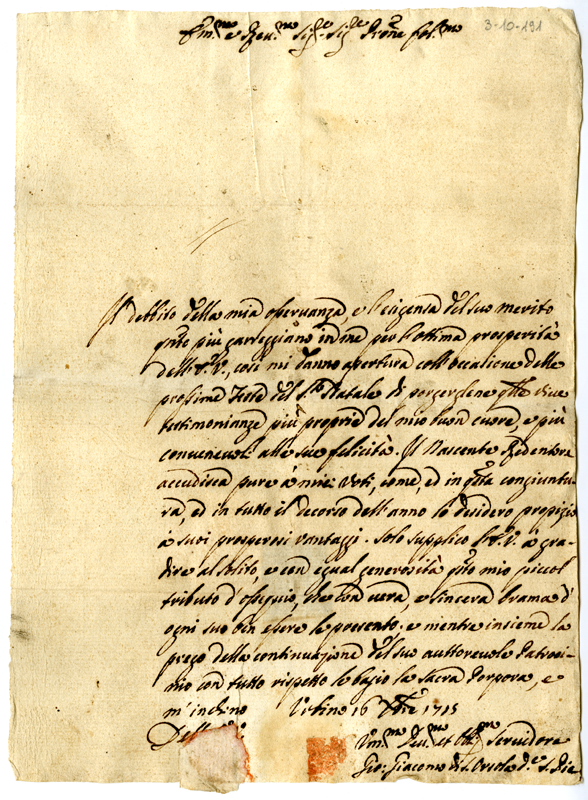 3-10-191
Em.mo e Reu.mo Sig.re Sig.re Prone Col.mo
Il debbito della mia osseruanza, e l'esigenza del suo merito
q.nto più gareggiano in me per l'ottima prosperità
dell'E.V., così mi danno apertura coll'occasione delle
prossime Feste del S.to Natale di porgerlene q.lle viue
testimonianze più proprie del mio buon cuore, e più
conueneuoli alle sue felicità. Il Nascente Redentore
accudisca pure à miei voti, come, ed in q.sta congiuntu-
ra, ed in tutto il decorso dell'anno lo desidero propizio
à suoi prosperosi vantaggi. Solo supplico l'E.V. à gra-
dire al solito, e con egual generosità q.sto mio piccol
tributo d'ossequio, che con vera, e sincera brama d'
ogni suo ben essere le presento. e mentre insieme la
prego della continuazione del suo auttoreuole Patroci-
nio con tutto rispetto le bacio la Sacra Porpora, e
m'inchino Urbino 16 Xbre 1715
Dell'E.V.
Um.mo Deu.mo et Obl.mo Seruidore
Gio: Giacomo di S.